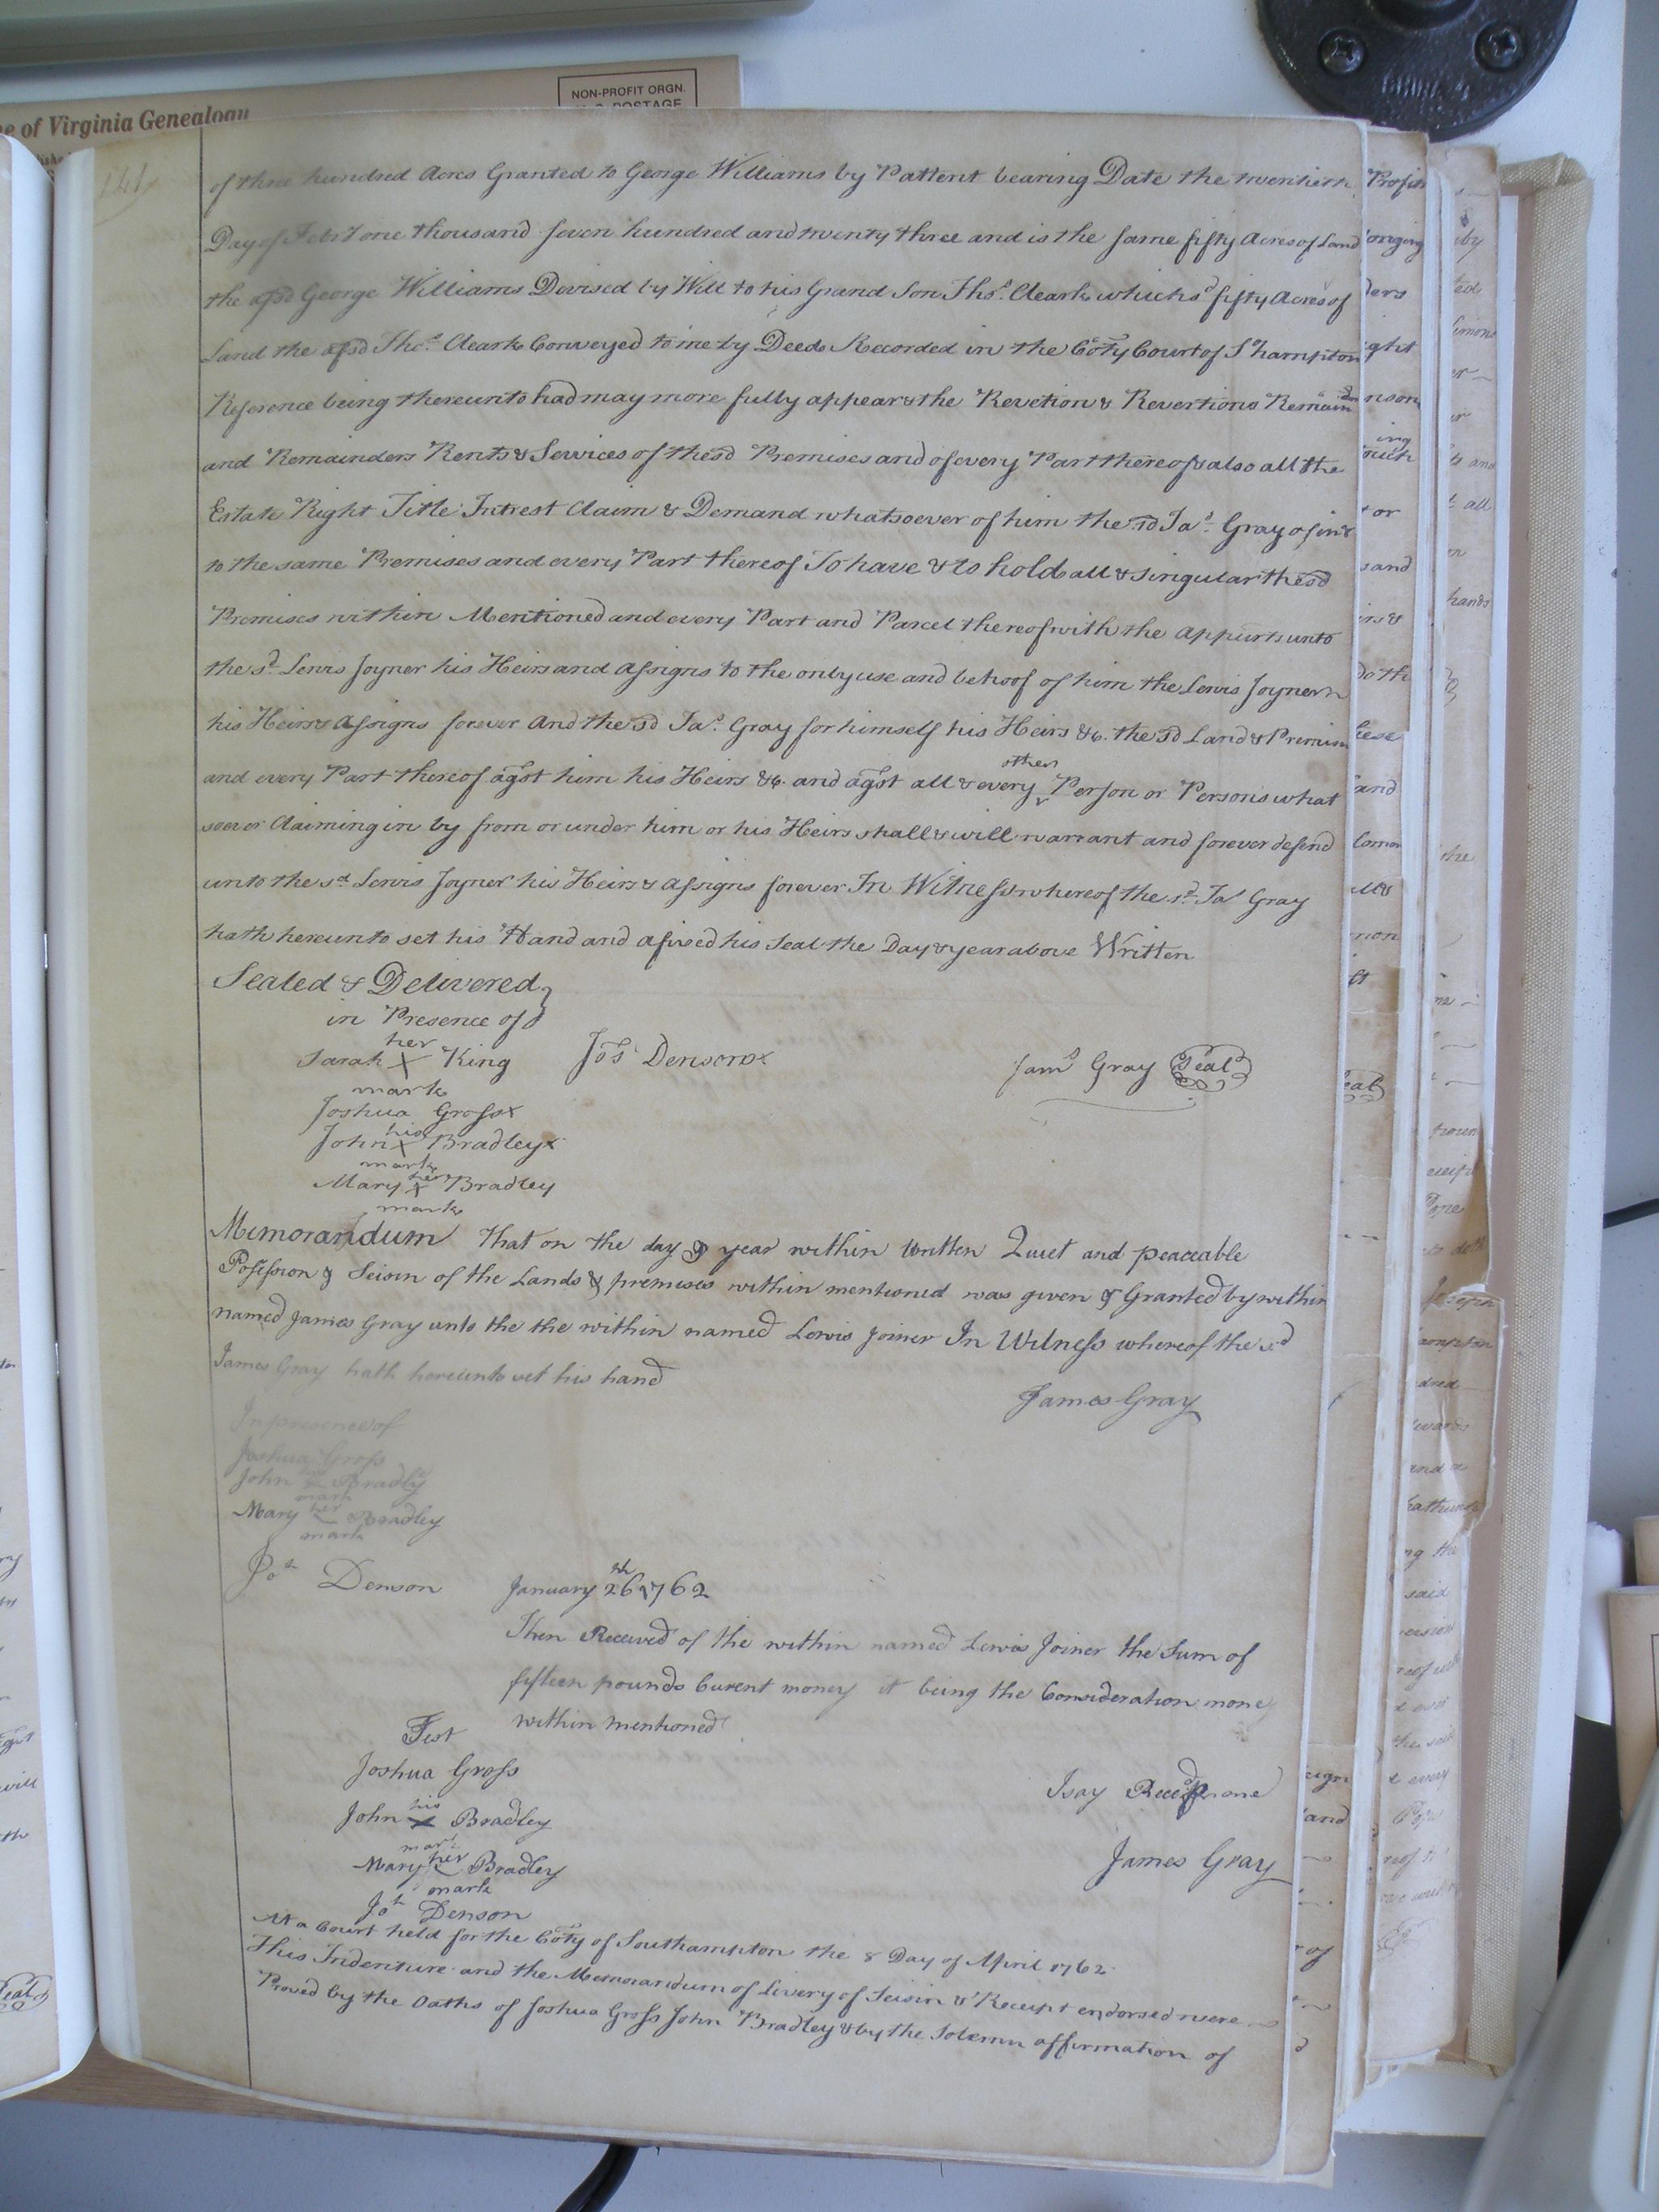 NON-PROFIT ORGN.
U.S. POSTAGE
e of Virginia Genealogy
141
of three hundred Acres Granted to George Williams by Pattent bearing Date the twentieth
Day of Febry one thousand seven hundred and twenty three and is the same fifty Acres of Land
the afsd George Williams Devised by Will to his Grand Son Thos. Clearke which sd fifty Acres of
Land the afsd Thos. Clearke Conveyed to me by Deede Recorded in the Coty Court of S'hampton
Reference being thereunto had may more fully appear & the Revetion & Revertions Remaindr
and Remainders Rents & Services of the sd Premises and of every Part thereof & also all the
Estate Right Title Intrest Claim & Demand whatsoever of him the sd Jas. Gray of in &
to the same Premises and every Part thereof To have & to hold all & singular the sd
Premises within Mentioned and every Part and Parcel thereof with the appurts unto
the sd. Lewis Joyner his Heirs and assigns to the only use and behoof of him the Lewis Joyner
his Heirs & assigns forever And the sd Jas. Gray for himself his Heirs &c. the sd Land & Premises
and every Part thereof agst him his Heirs &c. and agst all & every other Person or Persons what
soever Claiming in by from or under him or his Heirs shall & will warrant and forever defend
unto the sd Lewis Joyner his Heirs & assigns forever In Witness whereof the sd. Jas Gray
hath hereunto set his Hand and afixed his Seal the Day & year above Written
Sealed & Delivered
in Presence of
her
Sarah X King Jos Denson x Jams Gray Seal
mark
Joshua Gross x
his
John X Bradley x
mark
her
Mary X Bradley
mark
Memorandum that on the day & year within written Quiet and peaceable
Posession & Seisin of the Lands & premises within mentioned was given & Granted by within
named James Gray unto the the within named Lewis Joiner In Witness whereof the sd
James Gray hath hereunto set his hand
James Gray
In presence of
Joshua Gross
John Bradly
mark
her
Mary Bradley
mark
Jos Denson January 26th 1762
Then Received of the within named Lewis Joiner the Sum of
fifteen pounds Curent money it being the Consideration money
within mentioned
Test
Joshua Gross
I say Reced
his
John X Bradley
mark
James Gray
her
Mary Bradley
mark
Jos Denson
At a Court held for the Coty of Southampton the 8 Day of April 1762
This Indenture and the Memorandum of Livery of Seisin & Receipt endorsed were
Proved by the Oaths of Joshua Gross John Bradley & by the Solemn affirmation of